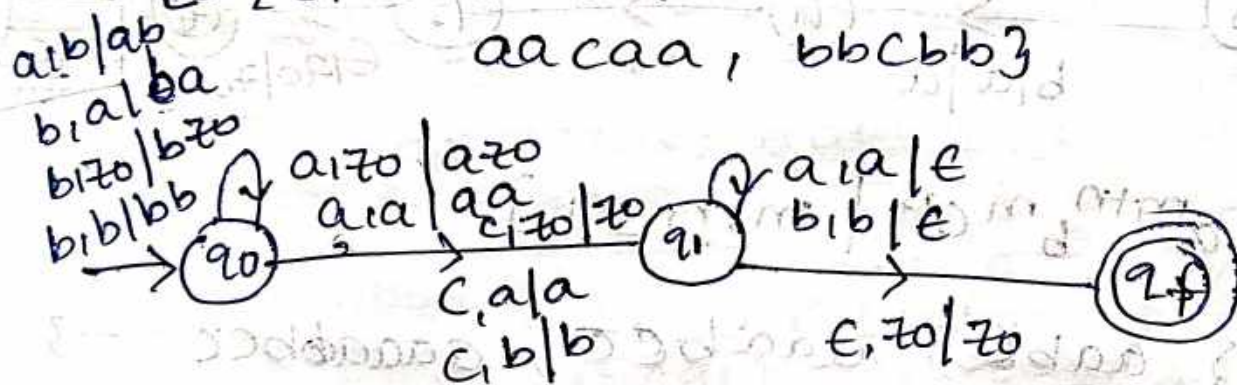 aacaa, bbcbb}
a,b|ab
b,a|ba
b,z0|bz0
b,b|bb
a,z0|az0
a,a|aa
c,z0|z0
c,a|a
c,b|b
a,a|ε
b,b|ε
ε,z0|z0
q0
q1
qf